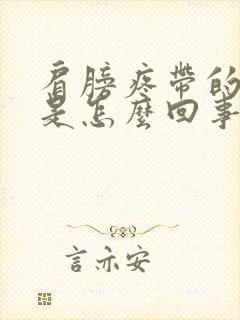 肩膀疼帶的
是怎麼回事
言亦安